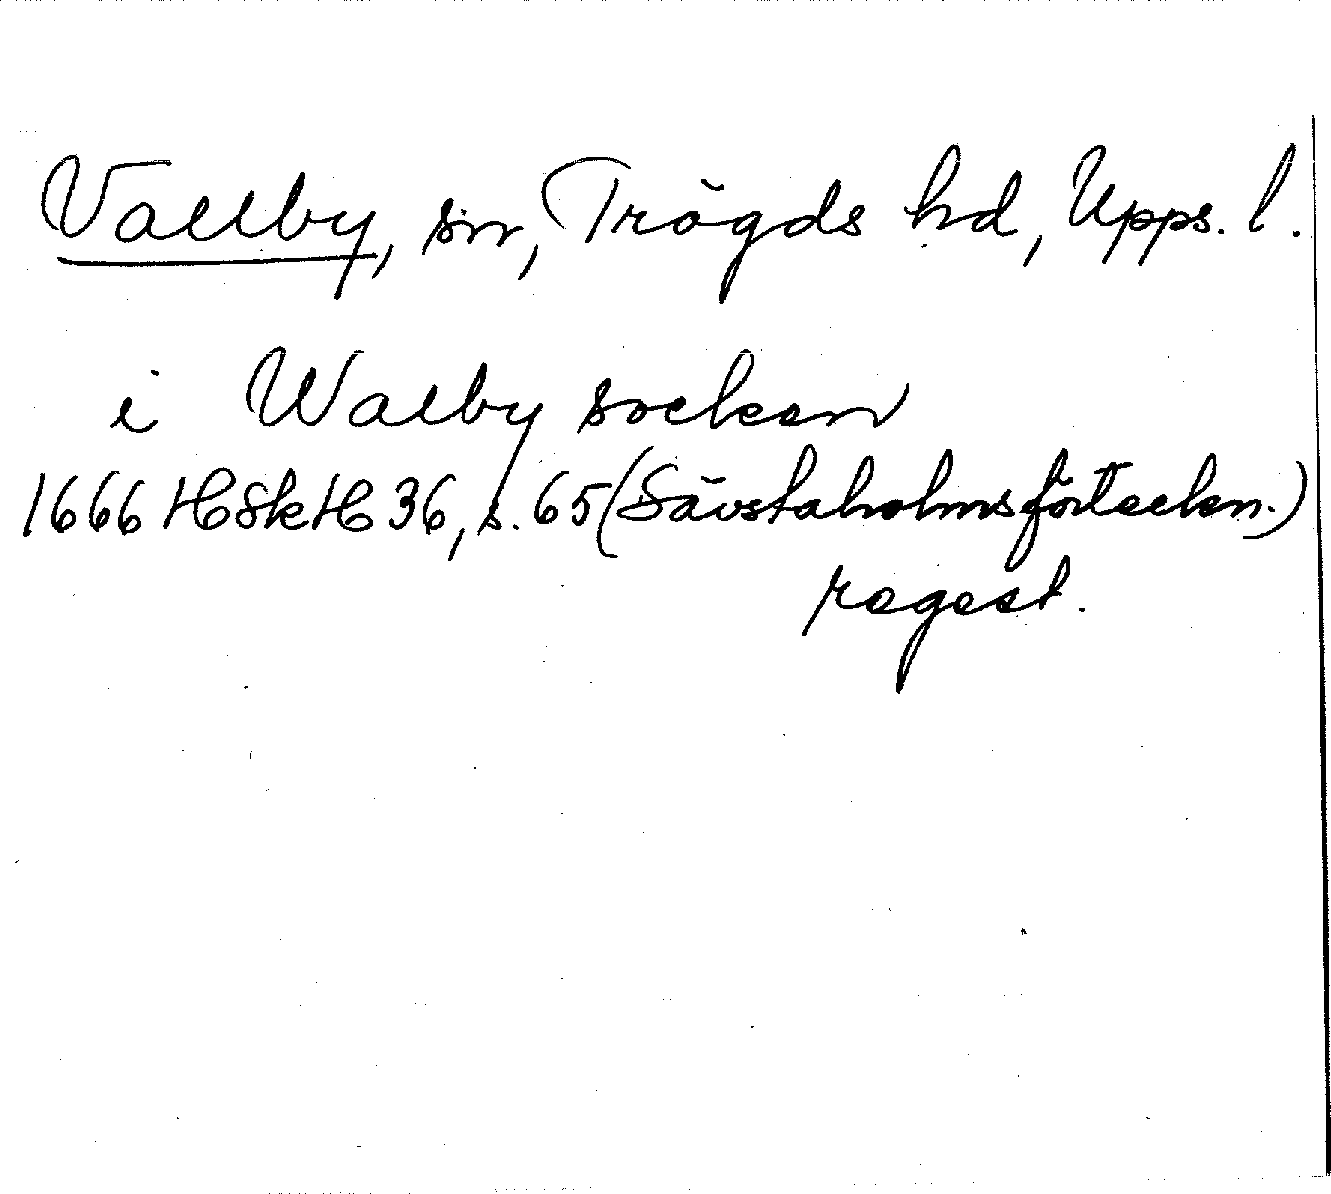 Vallby, sn, Trögds hd, Upps. l.
i Walby socken
1666 HSkH 36, s. 65 (Sävstaholmsförteckn.)
regest.